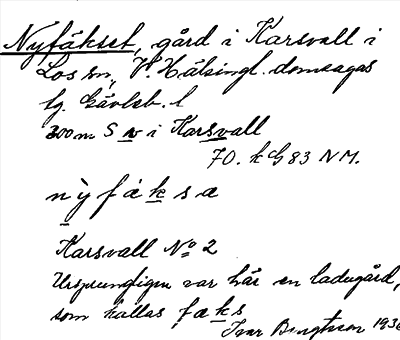 Nyfäkset, gård i Karsvall i
Los sn, V. Hälsingl. domsagas
tg. Gävleb. l
300 m S v i Karsvall
70. k G 83 N M.
n ỳ f ä k s a
Karsvall No 2
Ursprungligen var här en ladugård,
som kallas fäks
Ivar Bengtsson 1936